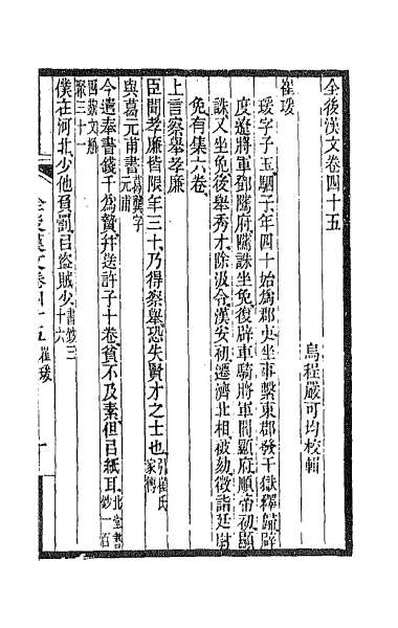 全後漢文卷四十五
烏程嚴可均校輯
崔瑗
瑗字子玉駰子年四十始為郡吏坐事繫東郡發干獄釋歸辟
度遼將軍鄧騭府騭誅坐免復辟車騎將軍閻顯府順帝初顯
誅又坐免後舉秀才除汲令漢安初遷濟北相被劾徵詣廷尉
免有集六卷
上言察舉孝廉
臣聞孝廉皆限年三十乃得察舉恐失賢才之士也張璠氏家傳
與葛元甫書葛龔字元甫
今遣奉書錢千為贄幷送許子十卷貧不及素但㠯紙耳北堂書鈔一百
四藝文類聚三十一
僕在河北少他為罰㠯盜賊少書鈔三十六
全後漢文卷四十五 崔瑗